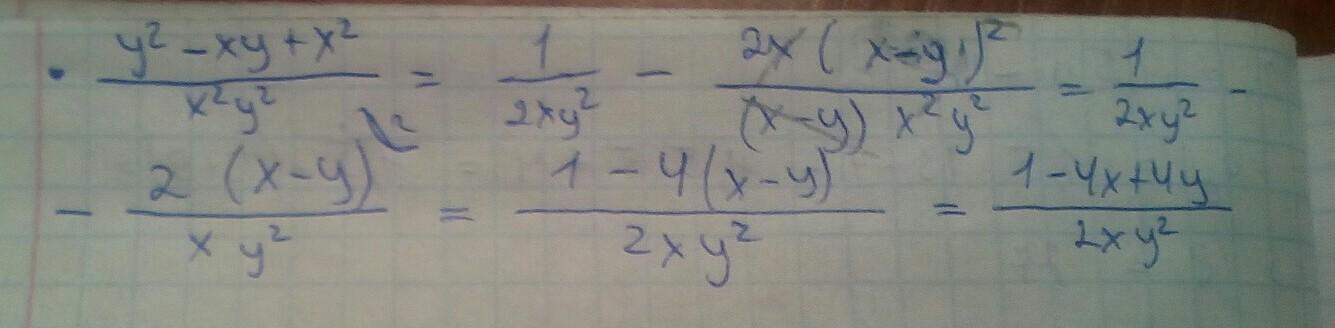 • (y² - xy + x²)/(x²y²) = 1/(2xy²) - (2x(x-y)²)/((x-y) x²y²) = 1/(2xy²) -
- (2(x-y))/(xy²) = (1-4(x-y))/(2xy²) = (1-4x+4y)/(2xy²)